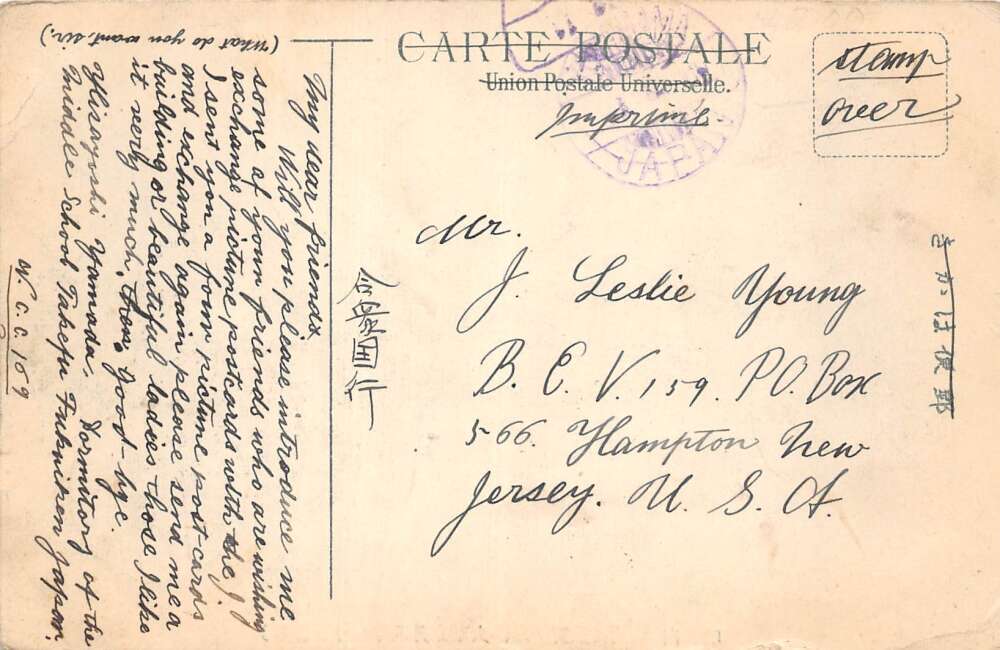 CARTE POSTALE
Union Postale Universelle.
Imprimé.
stamp
over
JAPAN
Mr.
J. Leslie Young
B. E. V. 159. P.O. Box
566. Hampton New
Jersey. U. S. A.
(What do you want, sir.)
My dear friends
Will you please introduce me
some of your friends who are wishing
exchange picture postcards with the, I
I sent you a four picture post-cards
and exchange again please send me a
building or beautiful ladies those I like
it very much, good-bye.
Hisayoshi Yamada. Dormitory of the
middle School Takefu Fukuiken Japan.
N. C. C. 109
きかは便郵